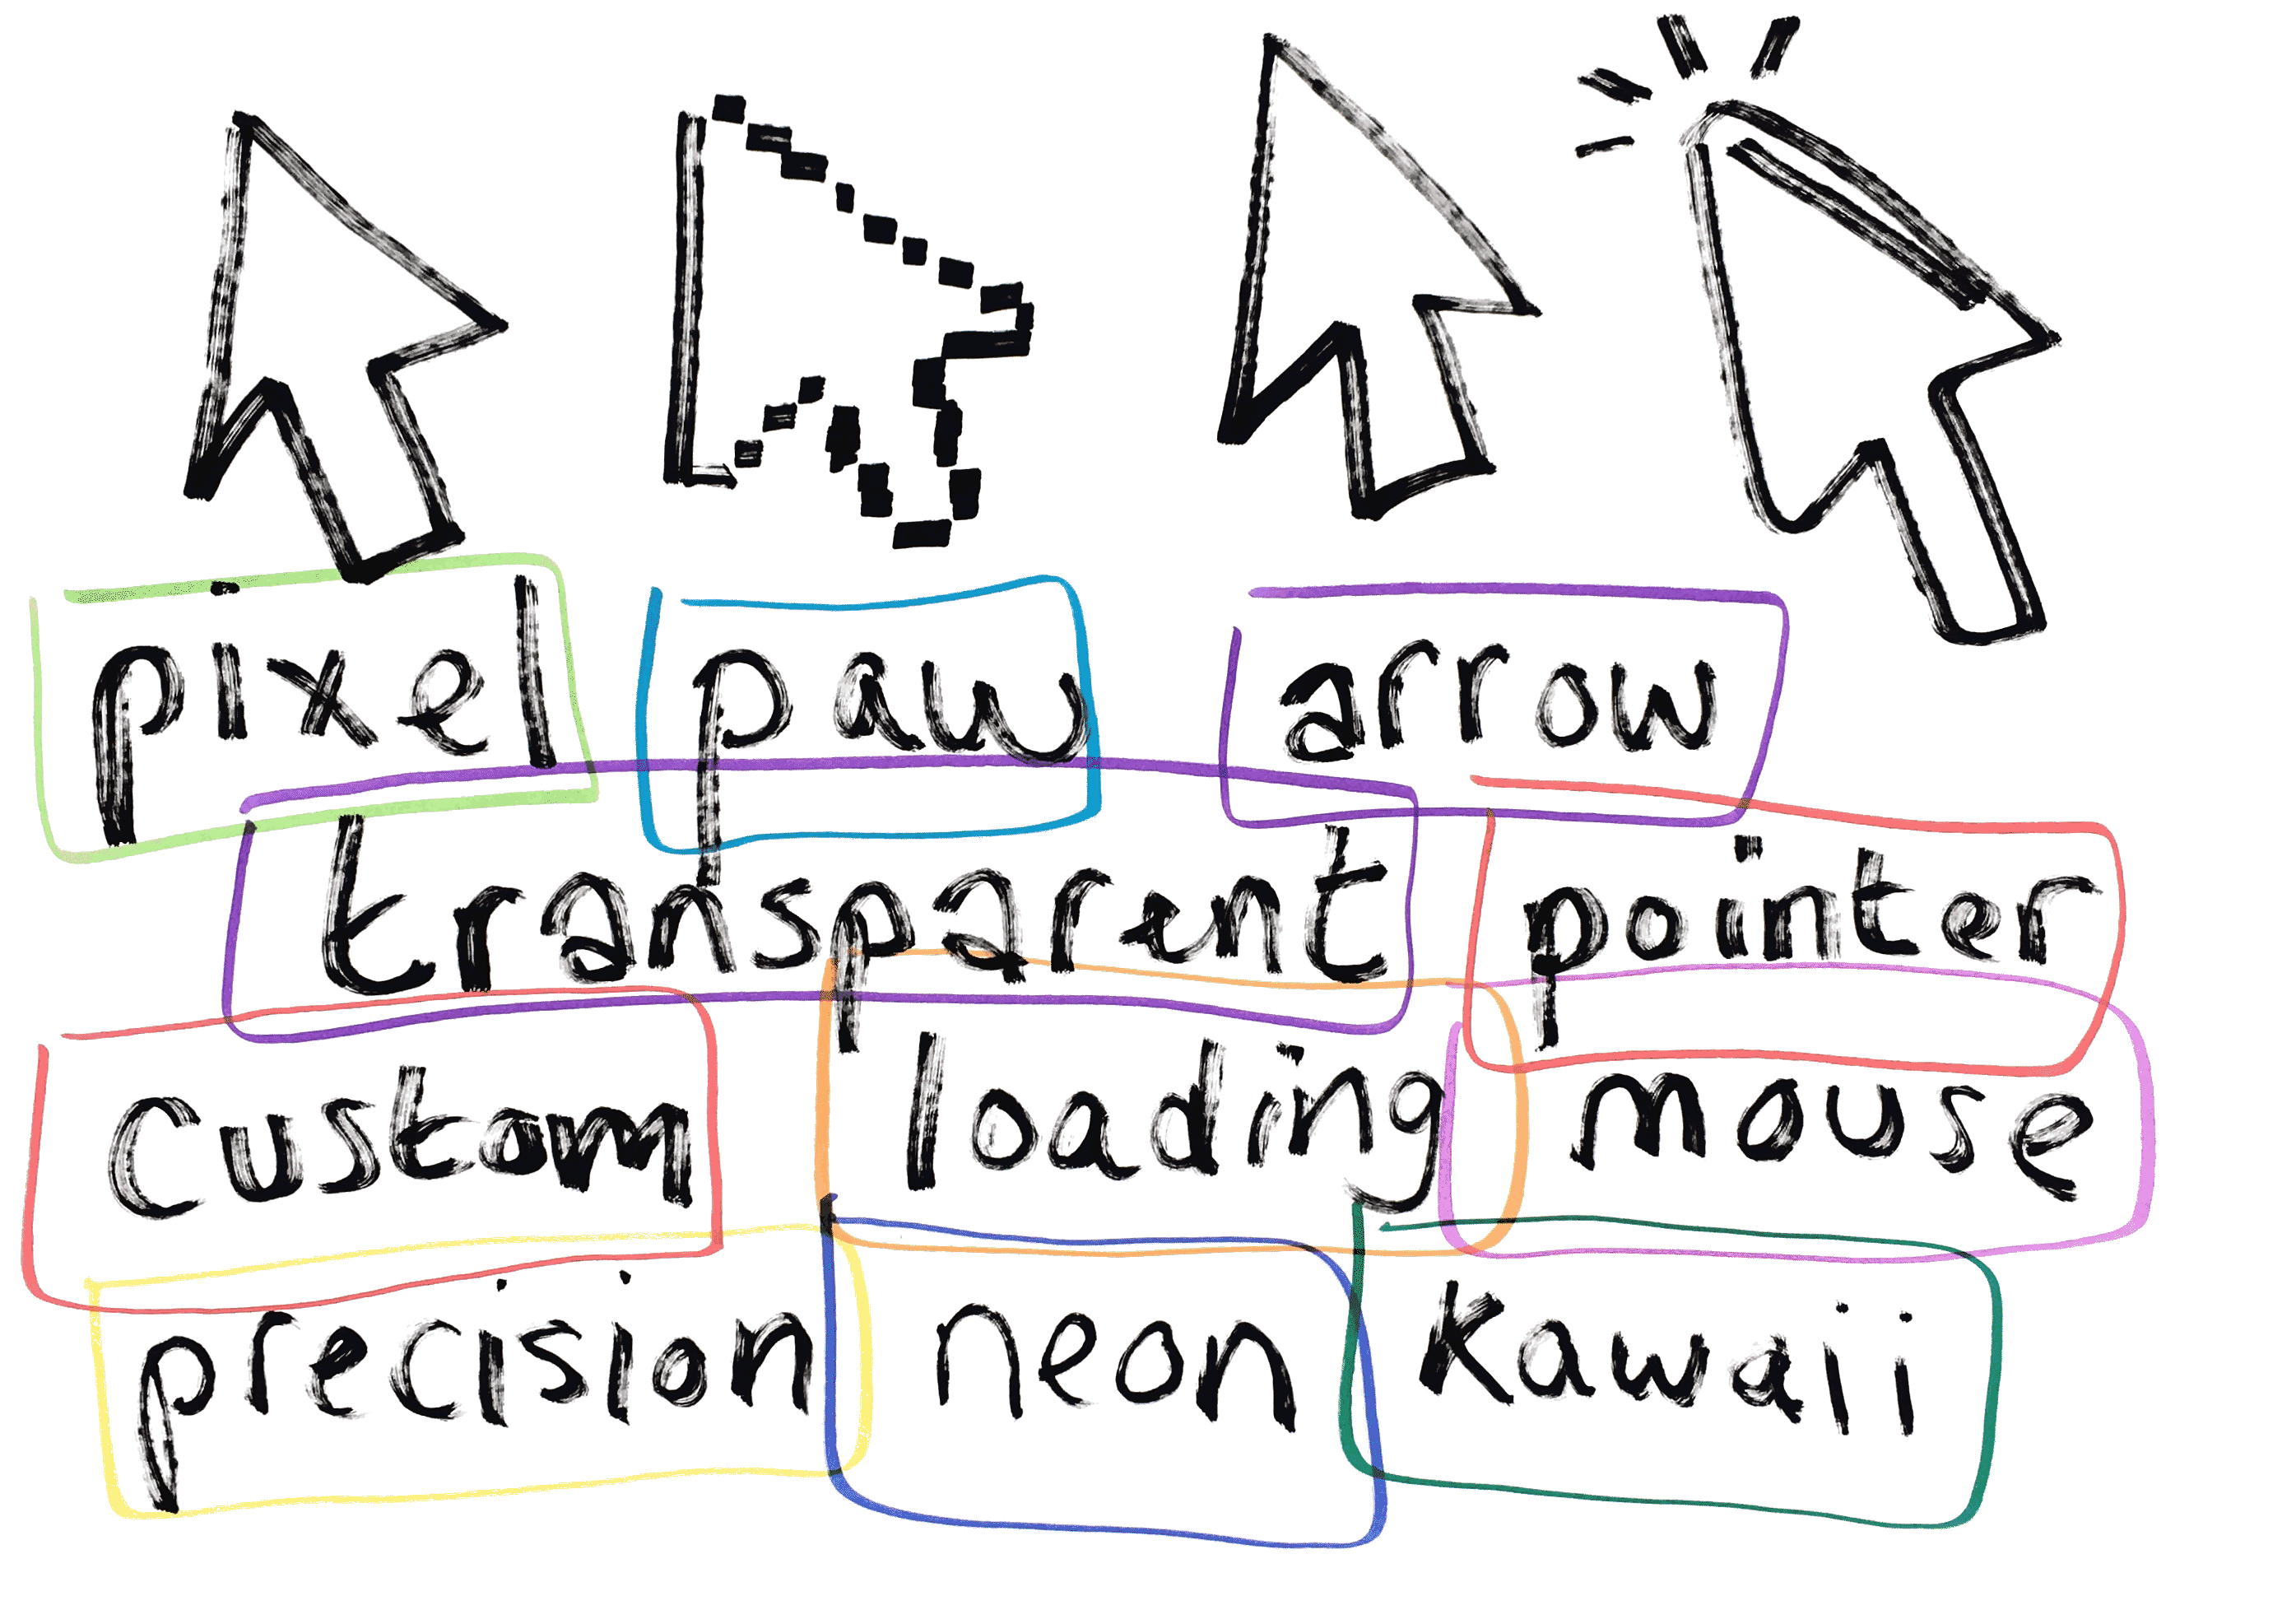 pixel paw arrow
transparent pointer
custom loading mouse
precision neon Kawaii